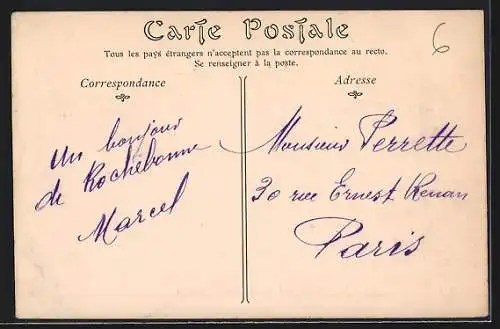 Carte Postale
Tous les pays étrangers n'acceptent pas la correspondance au recto.
Se renseigner à la poste.
6
Correspondance
Adresse
Un bonjour
de Rochebonne
Marcel
Monsieur Perrette
30 rue Ernest Renan
Paris